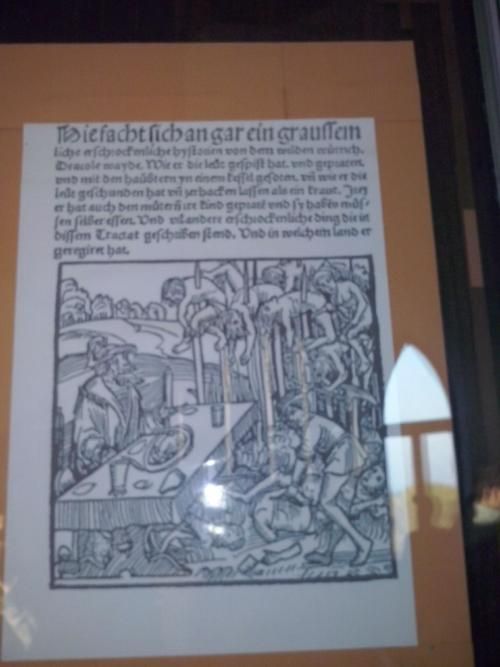 Hie facht sich an gar ein graussem
liche erschrockenliche hystorien von dem wilden wütrich.
Dracole wayde. Wie er die leüt gespist hat. vnd gepraten.
vnd mit den haübtern yn einem kessel gesoten. vñ wie er die
leüt geschunden hat vñ zerhacken lassen als ein kraut. Jtez
er hat auch den mütern ire kind gepratẽ vnd sy habẽ müs-
sen selber essen. Vnd vil andere erschrockenliche ding die in
dissem Tractat geschriben stend. Vnd in welchem land er
geregiret hat.